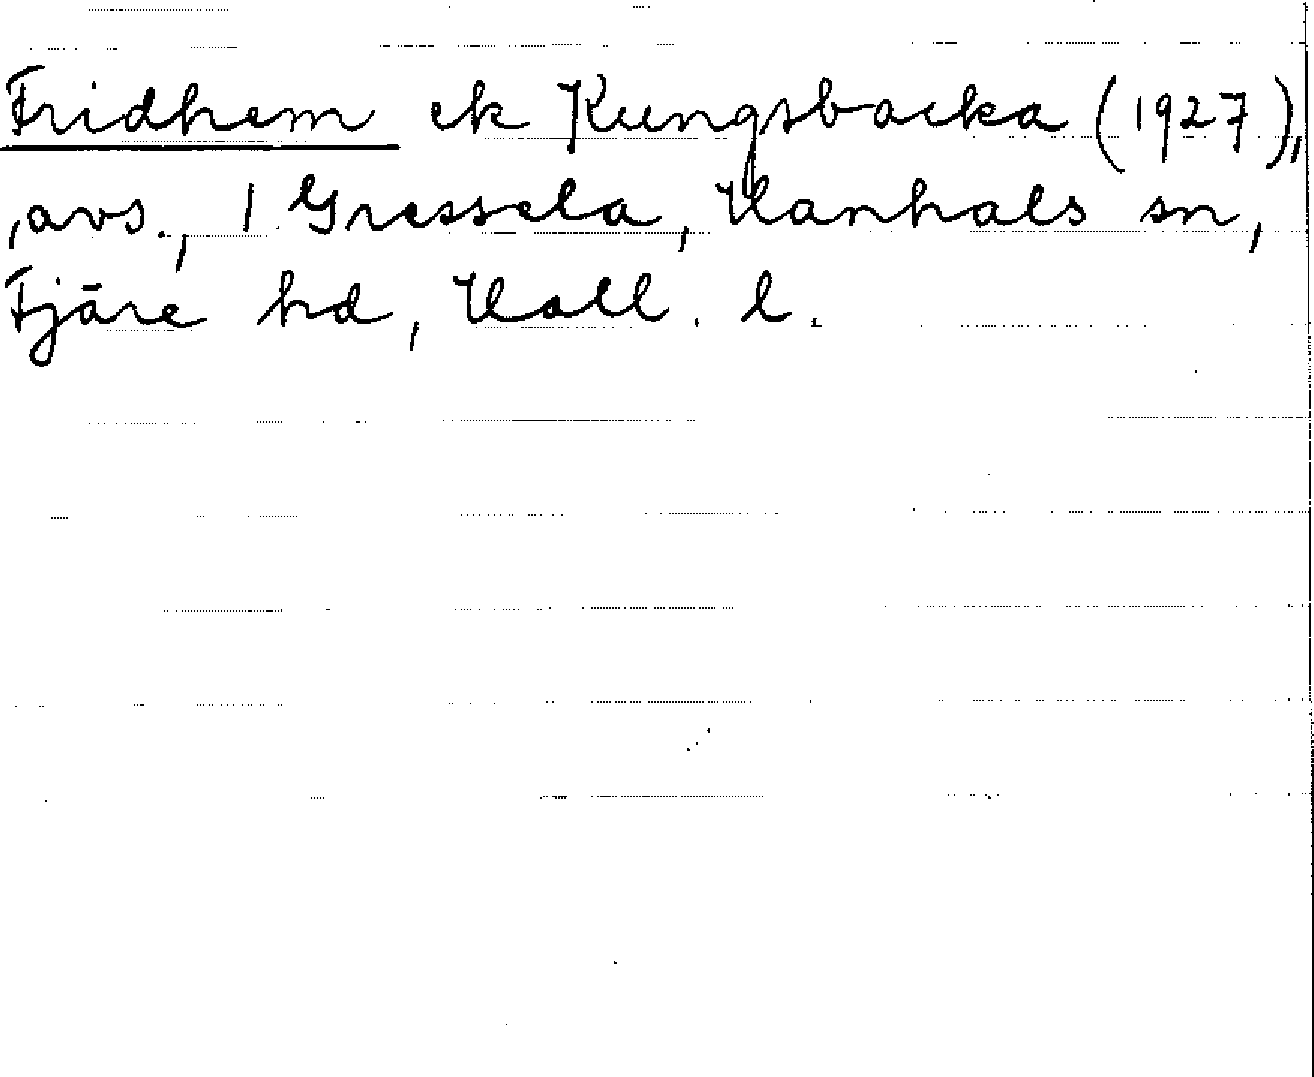 Fridhem ek Kungsbacka (1927),
, avs., 1 Gressela, Hanhals sn,
Fjäre hd, Hall. l.